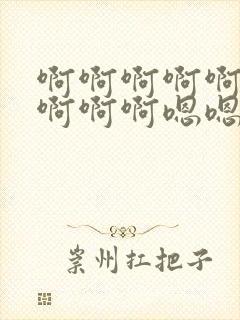 啊啊啊啊啊
啊啊啊嗯嗯
崇州扛把子